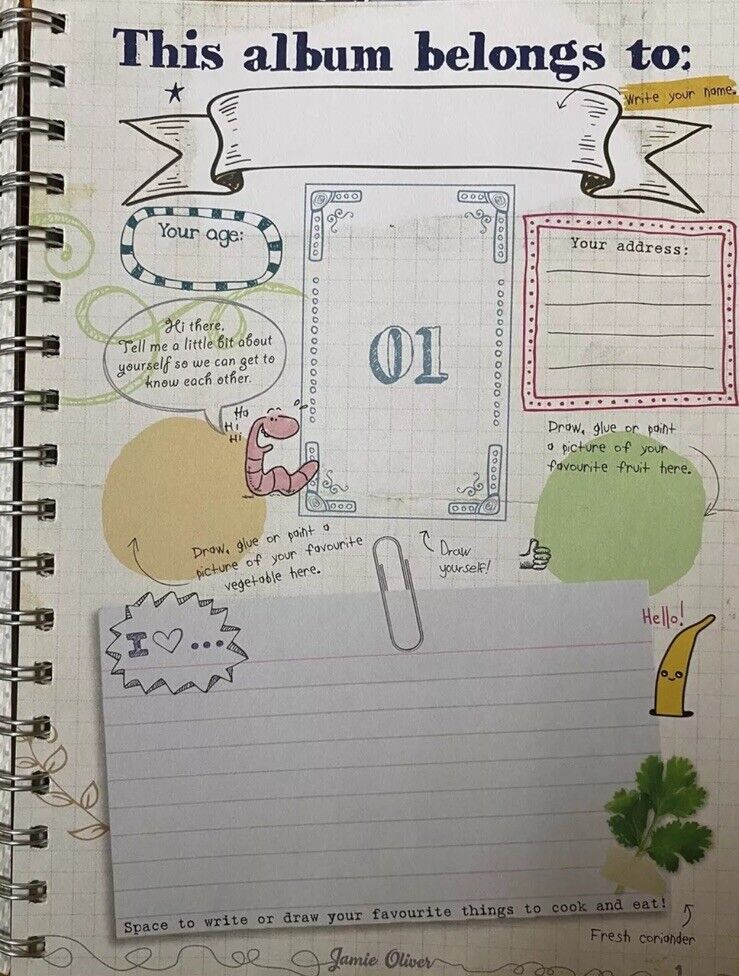 This album belongs to:
Write your name.
Your age:
Your address:
01
Hi there.
Tell me a little bit about
yourself so we can get to
know each other.
Ha
Hi
Hi
Draw, glue or paint
a picture of your
favourite fruit here.
Draw, glue or paint a
picture of your favourite
vegetable here.
Draw
yourself!
I ♡ ...
Hello!
Space to write or draw your favourite things to cook and eat!
Fresh coriander
Jamie Oliver
1